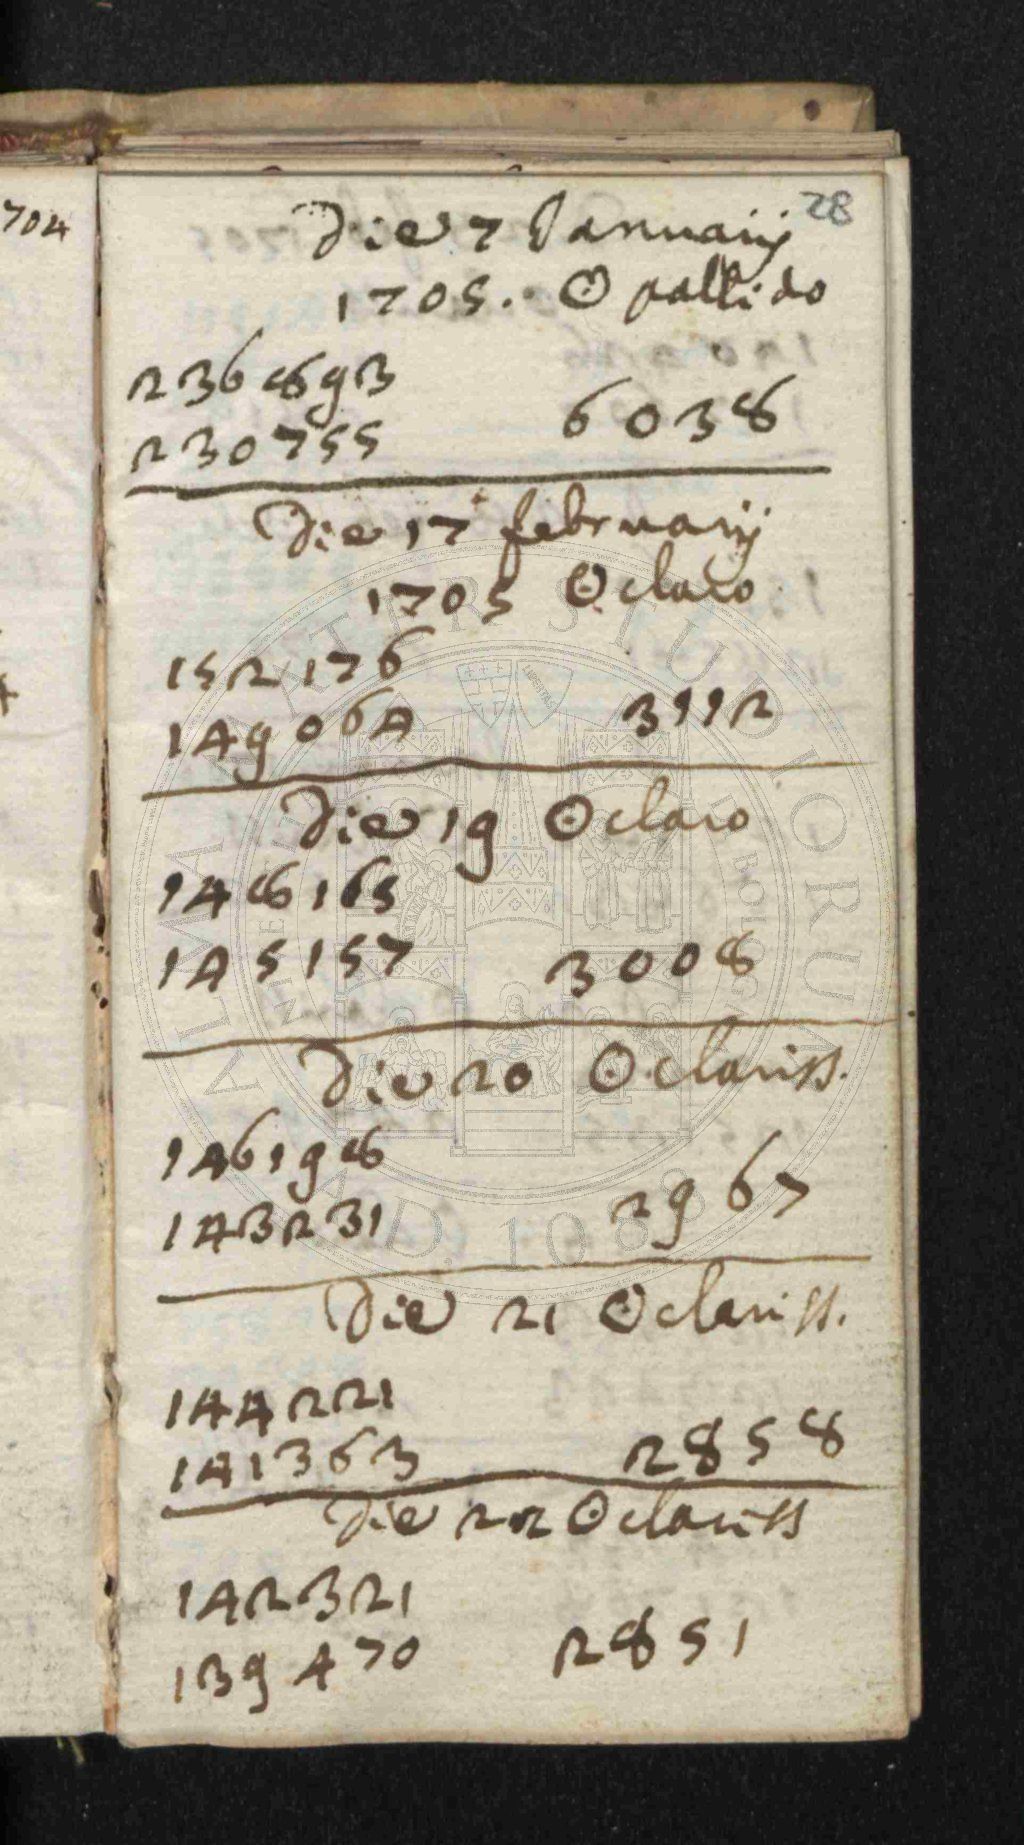 704
28
Die 7 Januarij
1705. ☉ pallido
236893
230755 6038
Die 17 februarij
1705 ☉ claro
152176
149064 3112
Die 19 ☉ claro
148165
145157 3008
Die 20 ☉ clariss.
146198
143231 2967
Die 21 ☉ clariss.
144221
141363 2858
Die 22 ☉ clariss
142321
139470 2851
ALMA MATER STUDIORUM
A.D. 1088